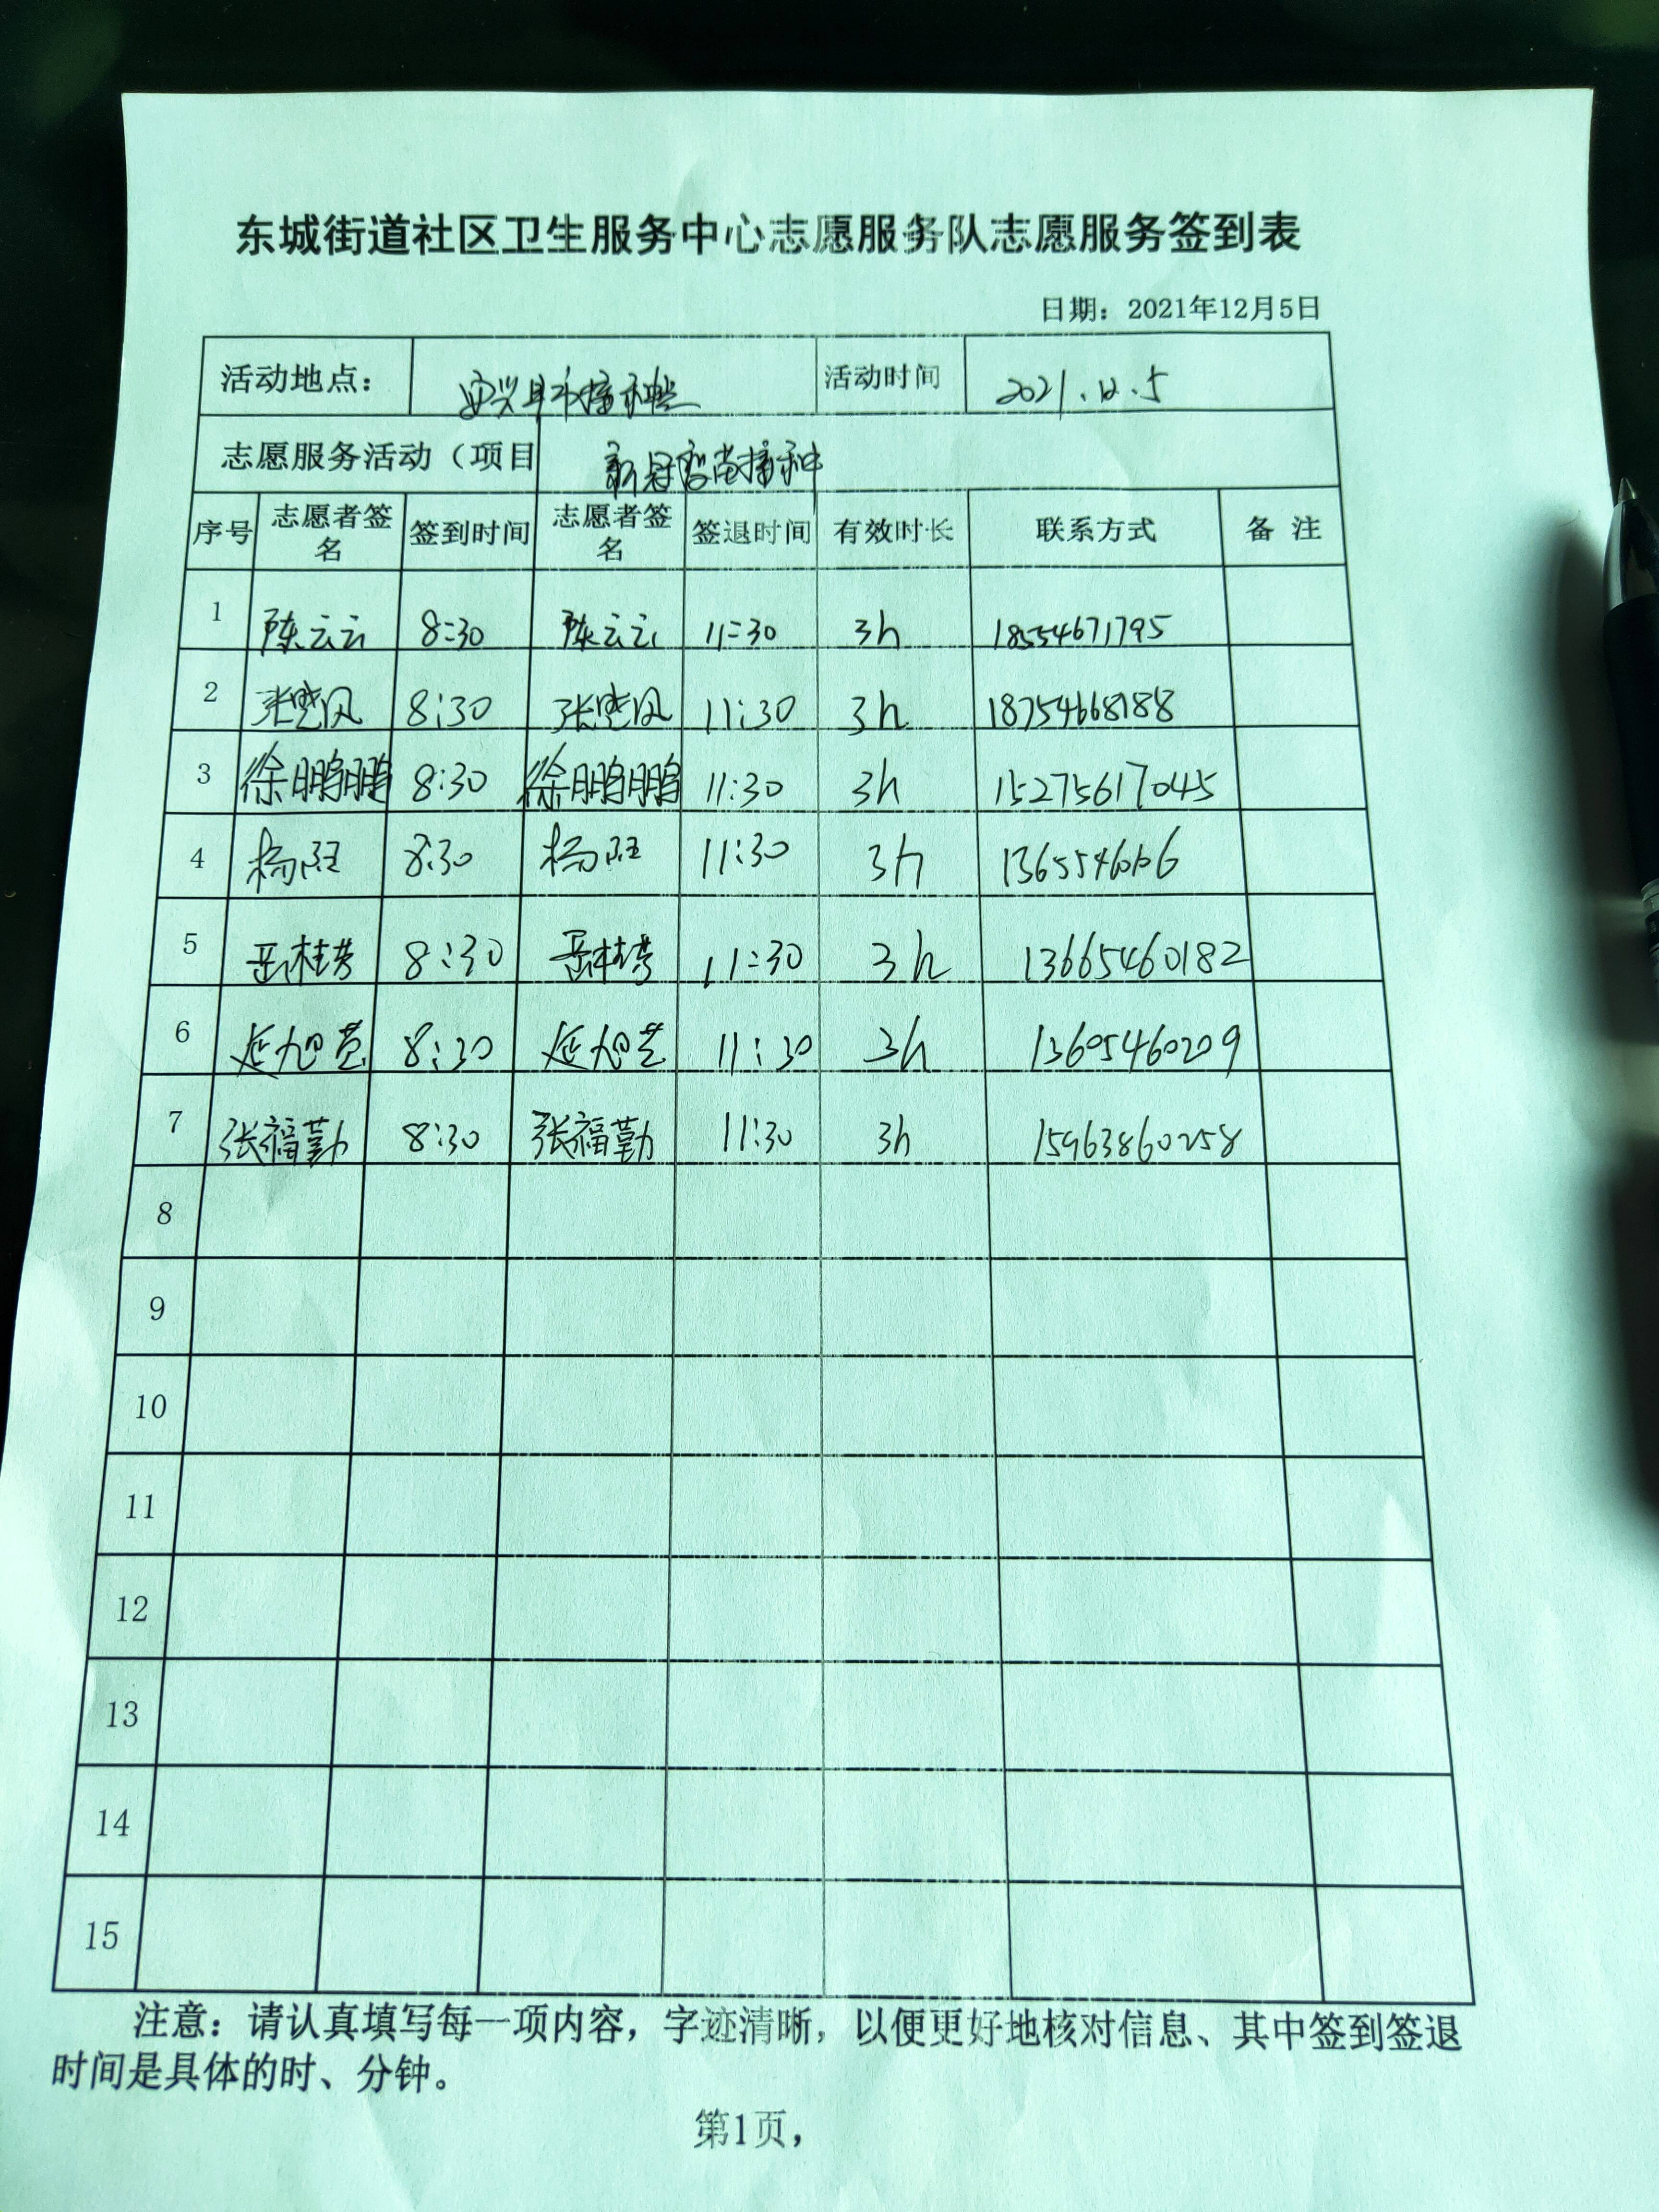 东城街道社区卫生服务中心志愿服务队志愿服务签到表
日期：2021年12月5日
活动地点： 接种点 活动时间 2021.12.5
志愿服务活动（项目 新冠疫苗接种
序号 志愿者签名 签到时间 志愿者签名 签退时间 有效时长 联系方式 备 注
1 陈云云 8:30 陈云云 11:30 3h 18554671795
2 张晓风 8:30 张晓风 11:30 3h 18754668188
3 徐鹏鹏 8:30 徐鹏鹏 11:30 3h 15275617045
4 杨 8:30 杨 11:30 3h
5 岳桂芳 8:30 岳桂芳 11:30 3h 13665460182
6 延旭 8:30 延旭 11:30 3h 13605460209
7 张福勤 8:30 张福勤 11:30 3h 15963860258
8
9
10
11
12
13
14
15
注意：请认真填写每一项内容，字迹清晰，以便更好地核对信息、其中签到签退
时间是具体的时、分钟。
第1页，